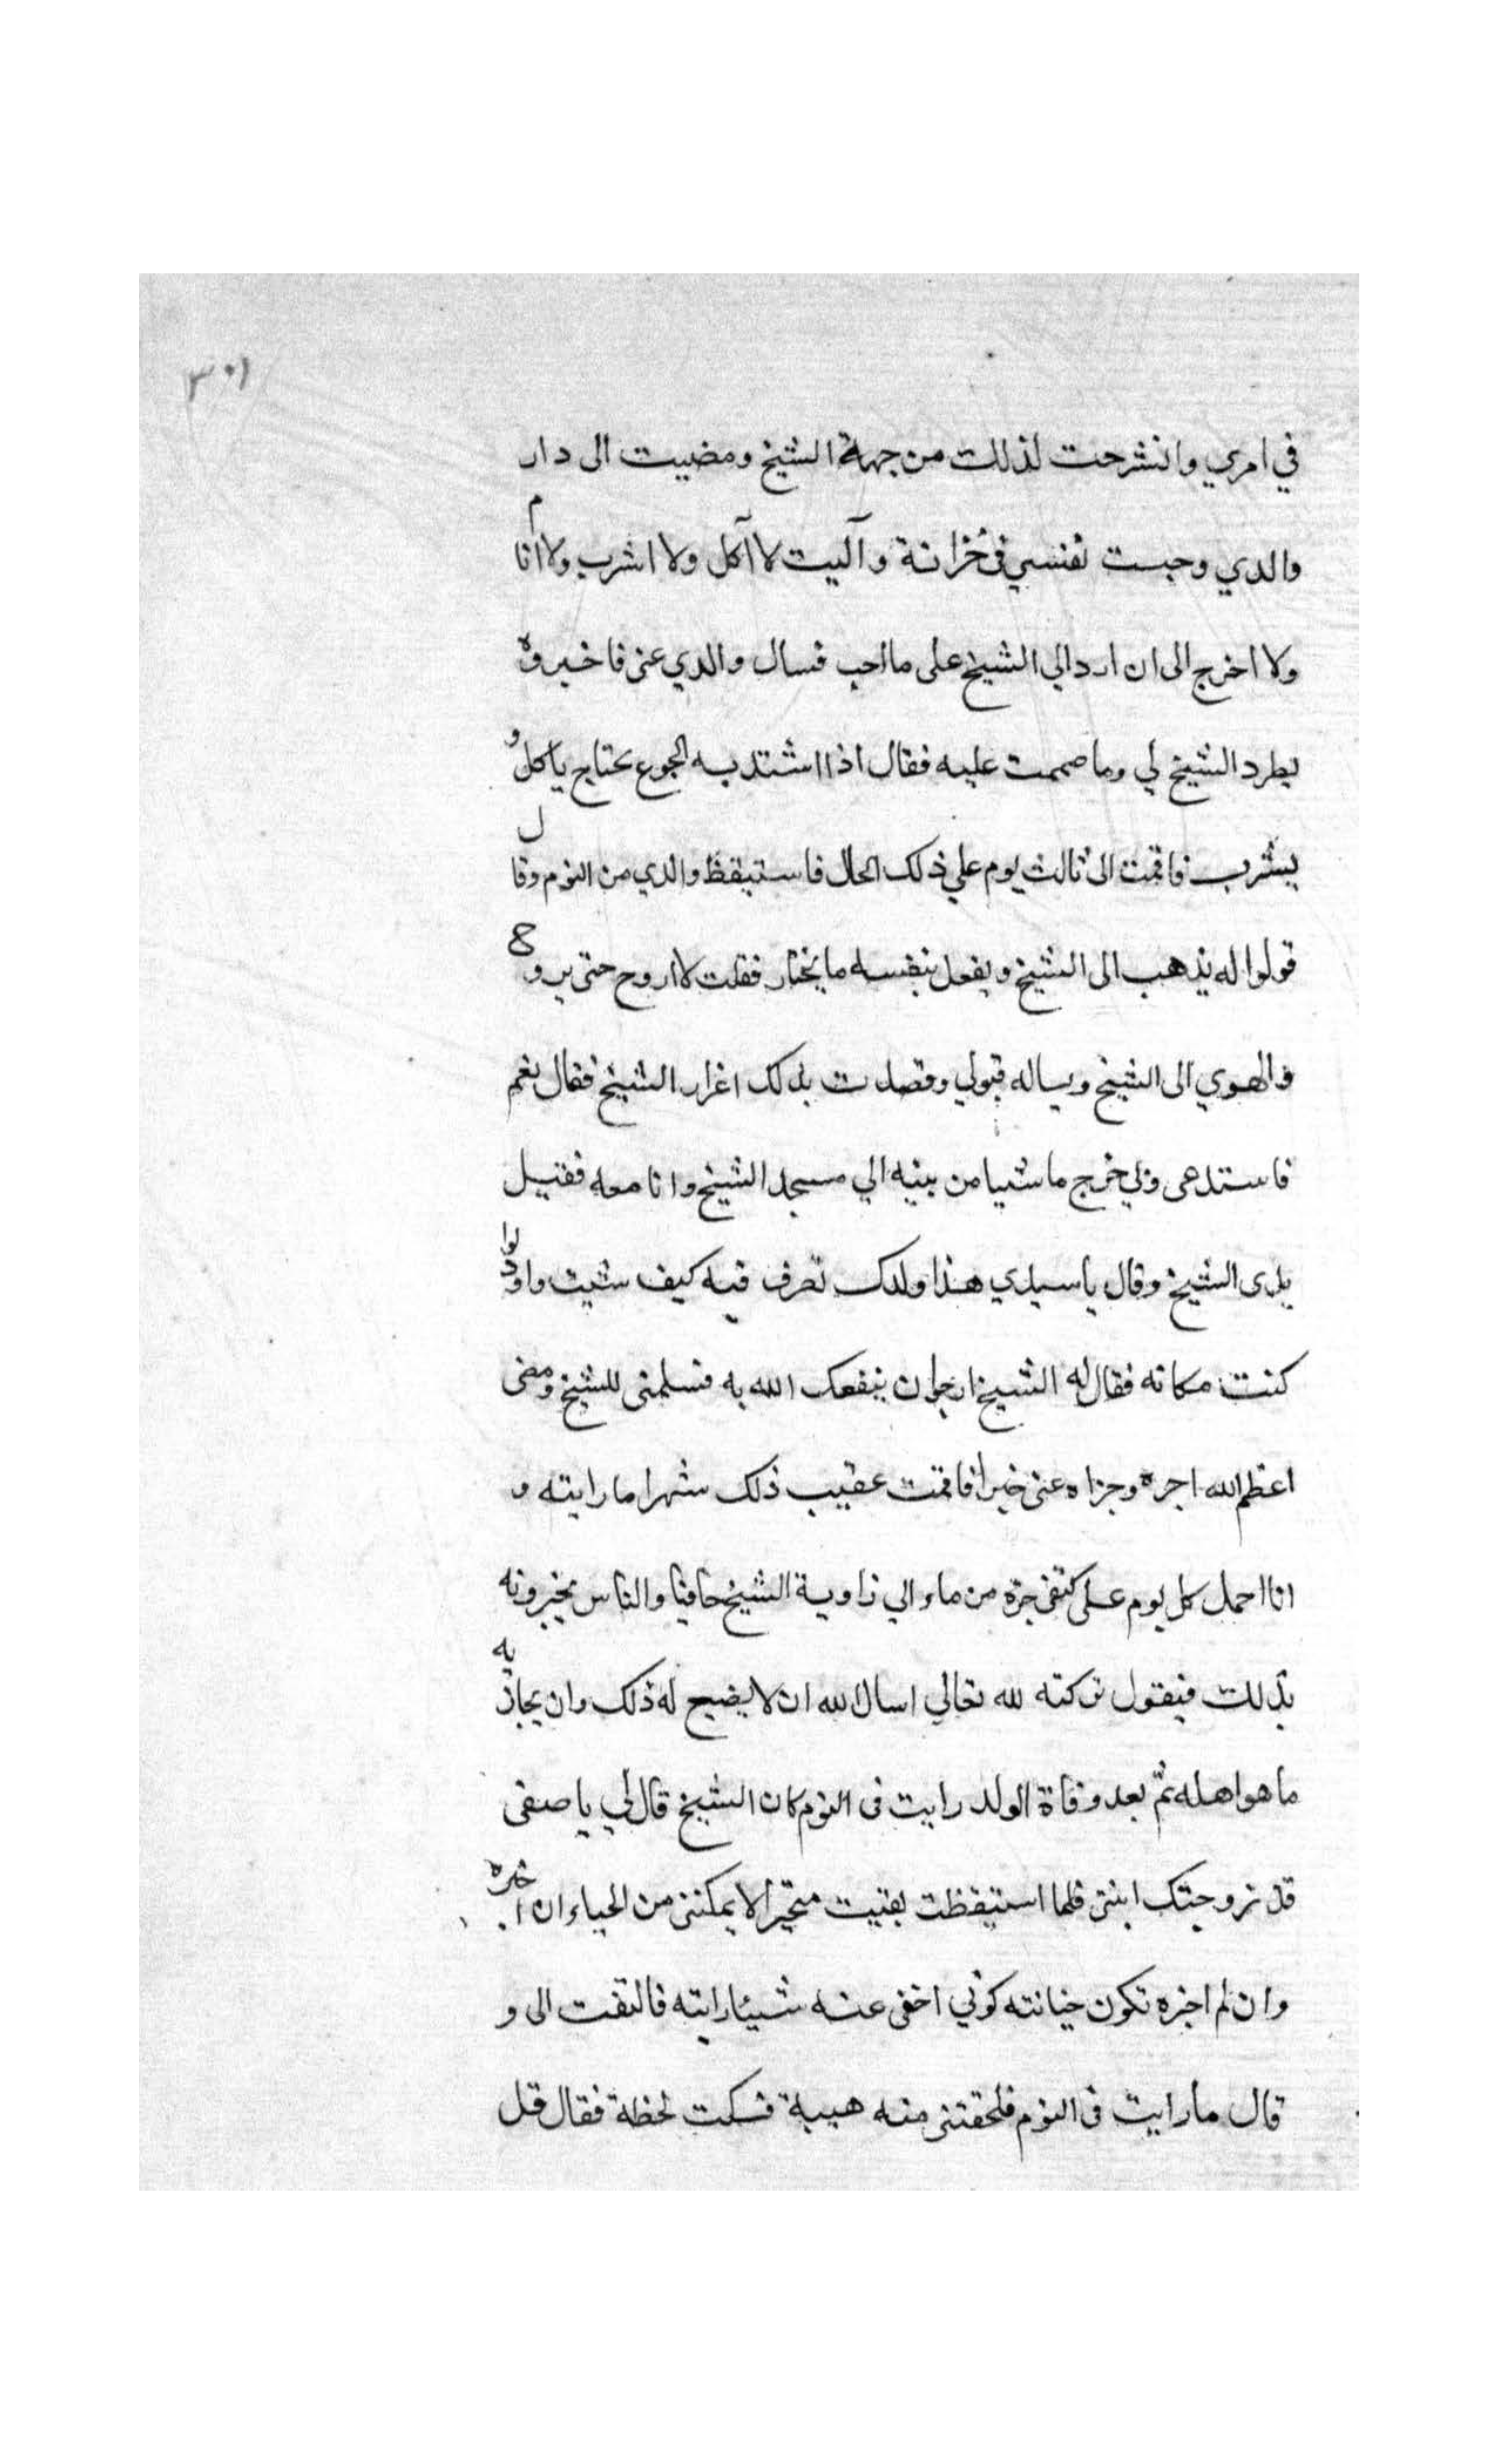 ٣٠١
في امري وانشرحت لذلك من جهة الشيخ ومضيت الى دار
والدي وحبست نفسي في خزانة وآليت لا آكل ولا اشرب ولا انام
ولا اخرج الى ان ارد الي الشيخ على ما احب فسال والدي عنى فاخبروه
بطرد الشيخ لي وما صممت عليه فقال اذا اشتد به الجوع يحتاج ياكل و
يشرب فاقمت الى ثالث يوم علي ذلك الحال فاستيقظ والدي من النوم وقال
قولوا له يذهب الى الشيخ ويفعل بنفسه ما يختار فقلت لا اروح حتى يروح
هو الى الشيخ ويساله قبولي وقصدت بذلك اغرار الشيخ فقال نعم
فاستدعى وخرج ماشيا من بيته الي مسجد الشيخ وانا معه فقبل
يدى الشيخ وقال يا سيدي هذا ولدك تصرف فيه كيف شيت واود لوا
كنت مكانه فقال له الشيخ ارجوا ان ينفعك الله به فسلمنى للشيخ ومضى
اعظم الله اجره وجزاه عنى خيرا فاقمت عقيب ذلك شهرا ما رايته و
انا احمل كل يوم على كتفى جرة من ماء الي زاوية الشيخ حافيا والناس يخبرونه
بذلك فيقول تركته لله تعالي اسال الله ان لا يضيع له ذلك وان يجازيه
ما هو اهله ثم بعد وفاة الوالد رايت فى النوم كان الشيخ قال لي يا صفى
قد زوجتك ابنتى فلما استيقظت بقيت متحيرا لا يمكننى من الحياء ان اخبره
وان لم اخبره تكون خيانته كوني اخفى عنه شيئا رايته فالتفت الى و
قال ما رايت فى النوم فلحقتنى منه هيبة فسكت لحظة فقال قل